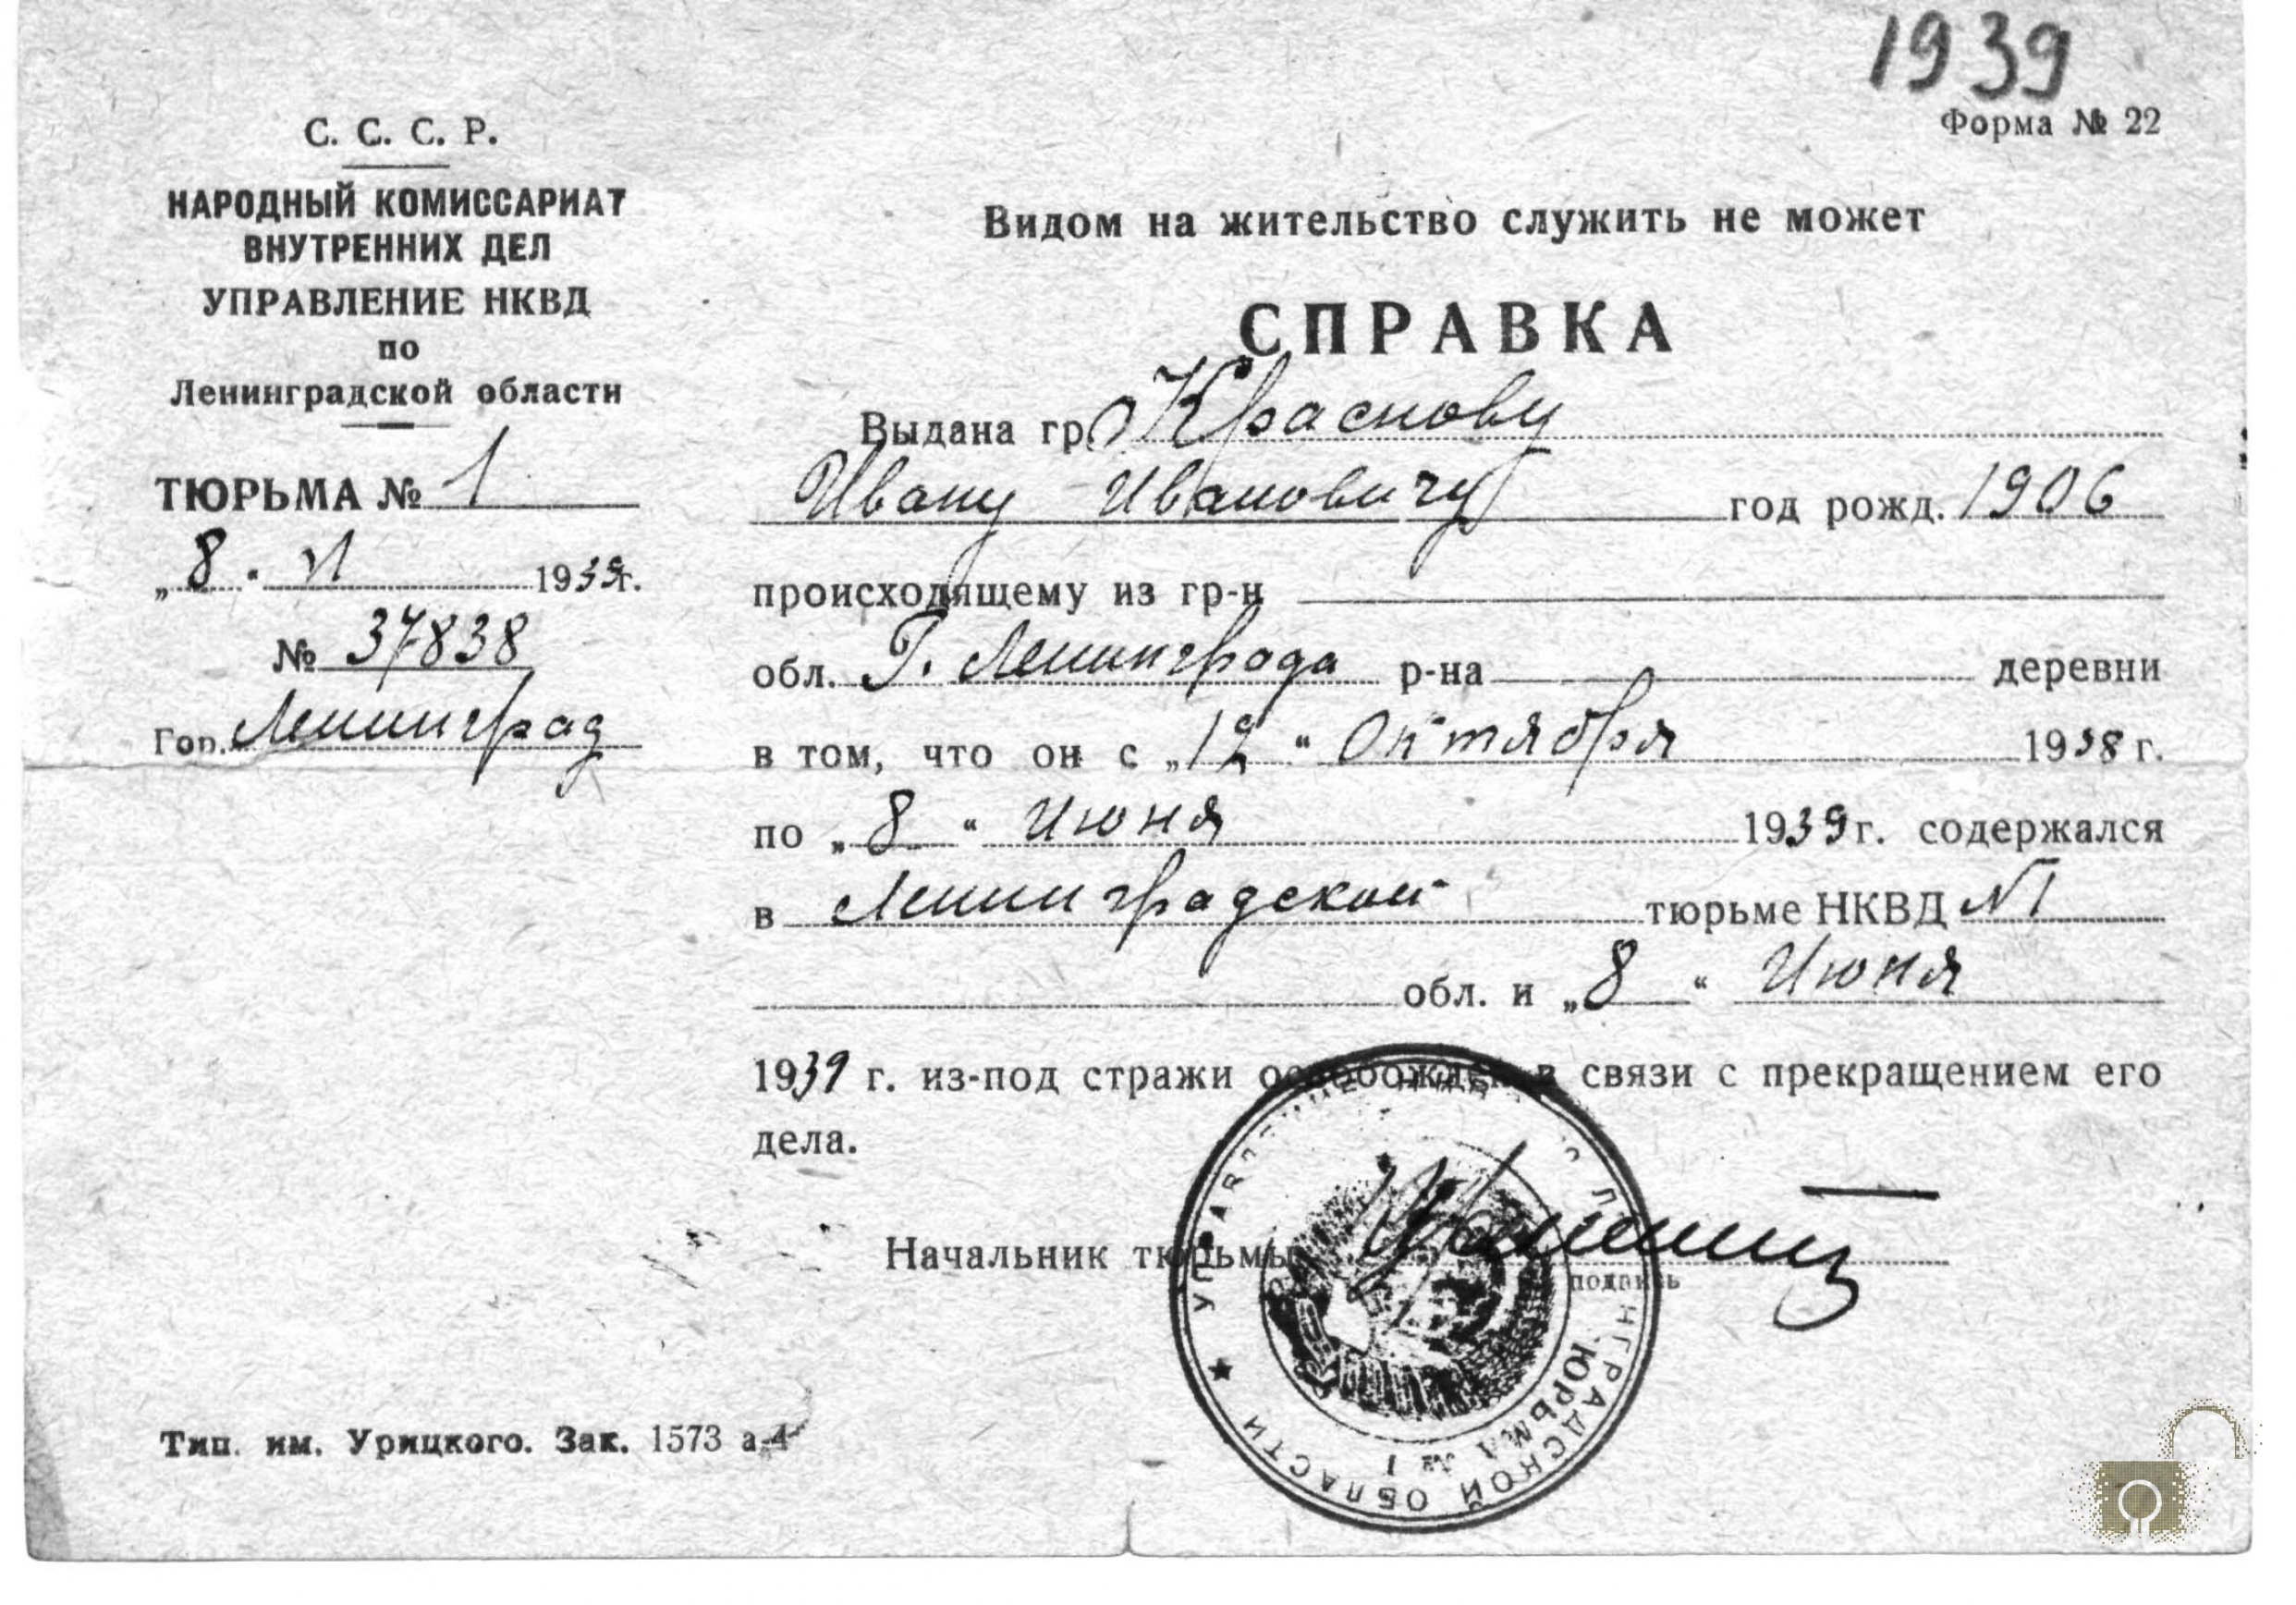 1939
Форма № 22
С. С. С. Р.
НАРОДНЫЙ КОМИССАРИАТ
ВНУТРЕННИХ ДЕЛ
УПРАВЛЕНИЕ НКВД
по
Ленинградской области
ТЮРЬМА № 1
„8“ VI 1939г.
№ 37838
Гор. Ленинград
Видом на жительство служить не может
СПРАВКА
Выдана гр. Краснову
Ивану Ивановичу год рожд. 1906
происходящему из гр-н
обл. Г. Ленинграда р-на деревни
в том, что он с „12“ Октября 1938 г.
по „8“ Июня 1939 г. содержался
в Ленинградской тюрьме НКВД №1
обл. и „8“ Июня
1939 г. из-под стражи освобожден в связи с прекращением его
дела.
Начальник тюрьмы
подпись
УПРАВЛЕНИЕ НКВД ПО ЛЕНИНГРАДСКОЙ ОБЛАСТИ
ТЮРЬМА № 1
Тип. им. Урицкого. Зак. 1573 а-4